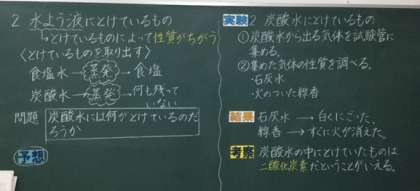 2 水よう液にとけているもの
とけているものによって性質がちがう
〈とけているものを取り出す〉
食塩水→蒸発→食塩
炭酸水→蒸発→何も残っていない
問題 炭酸水には何がとけているのだろうか
予想
実験2 炭酸水にとけているもの
①炭酸水から出る気体を試験管に集める。
②集めた気体の性質を調べる。
・石灰水
・火のついた線香
結果 石灰水→白くにごった。
線香→すぐに火が消えた。
考察 炭酸水の中にとけていたものは
二酸化炭素だということがいえる。